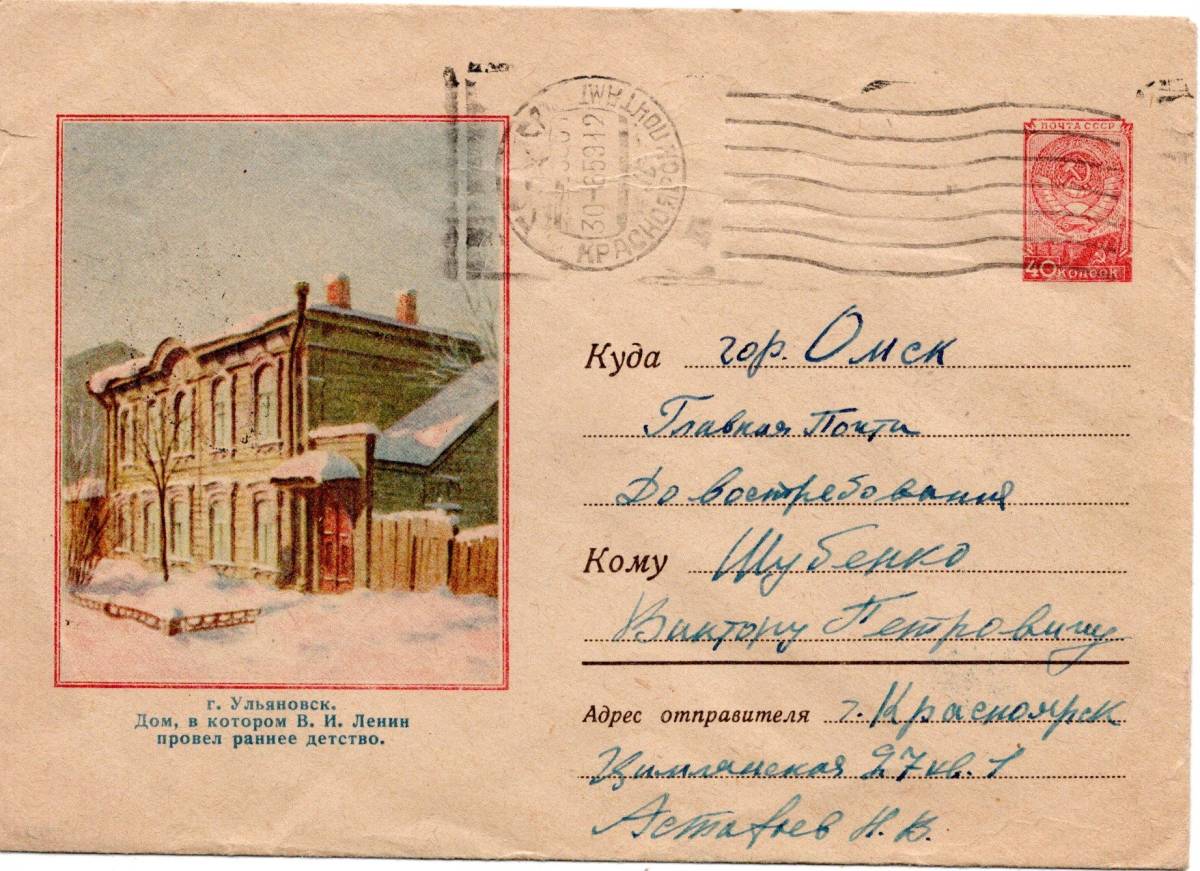 ПОЧТА СССР
40 КОПЕЕК
КРАСНОЯРСК ПОЧТАМТ
30-6 59 12
Куда гор. Омск
Главная Почта
До востребования
Кому Шубенко
Виктору Петровичу
Адрес отправителя г. Красноярск
Цимлянская 27 кв. 1
Астафьев Н. В.
г. Ульяновск.
Дом, в котором В. И. Ленин
провел раннее детство.